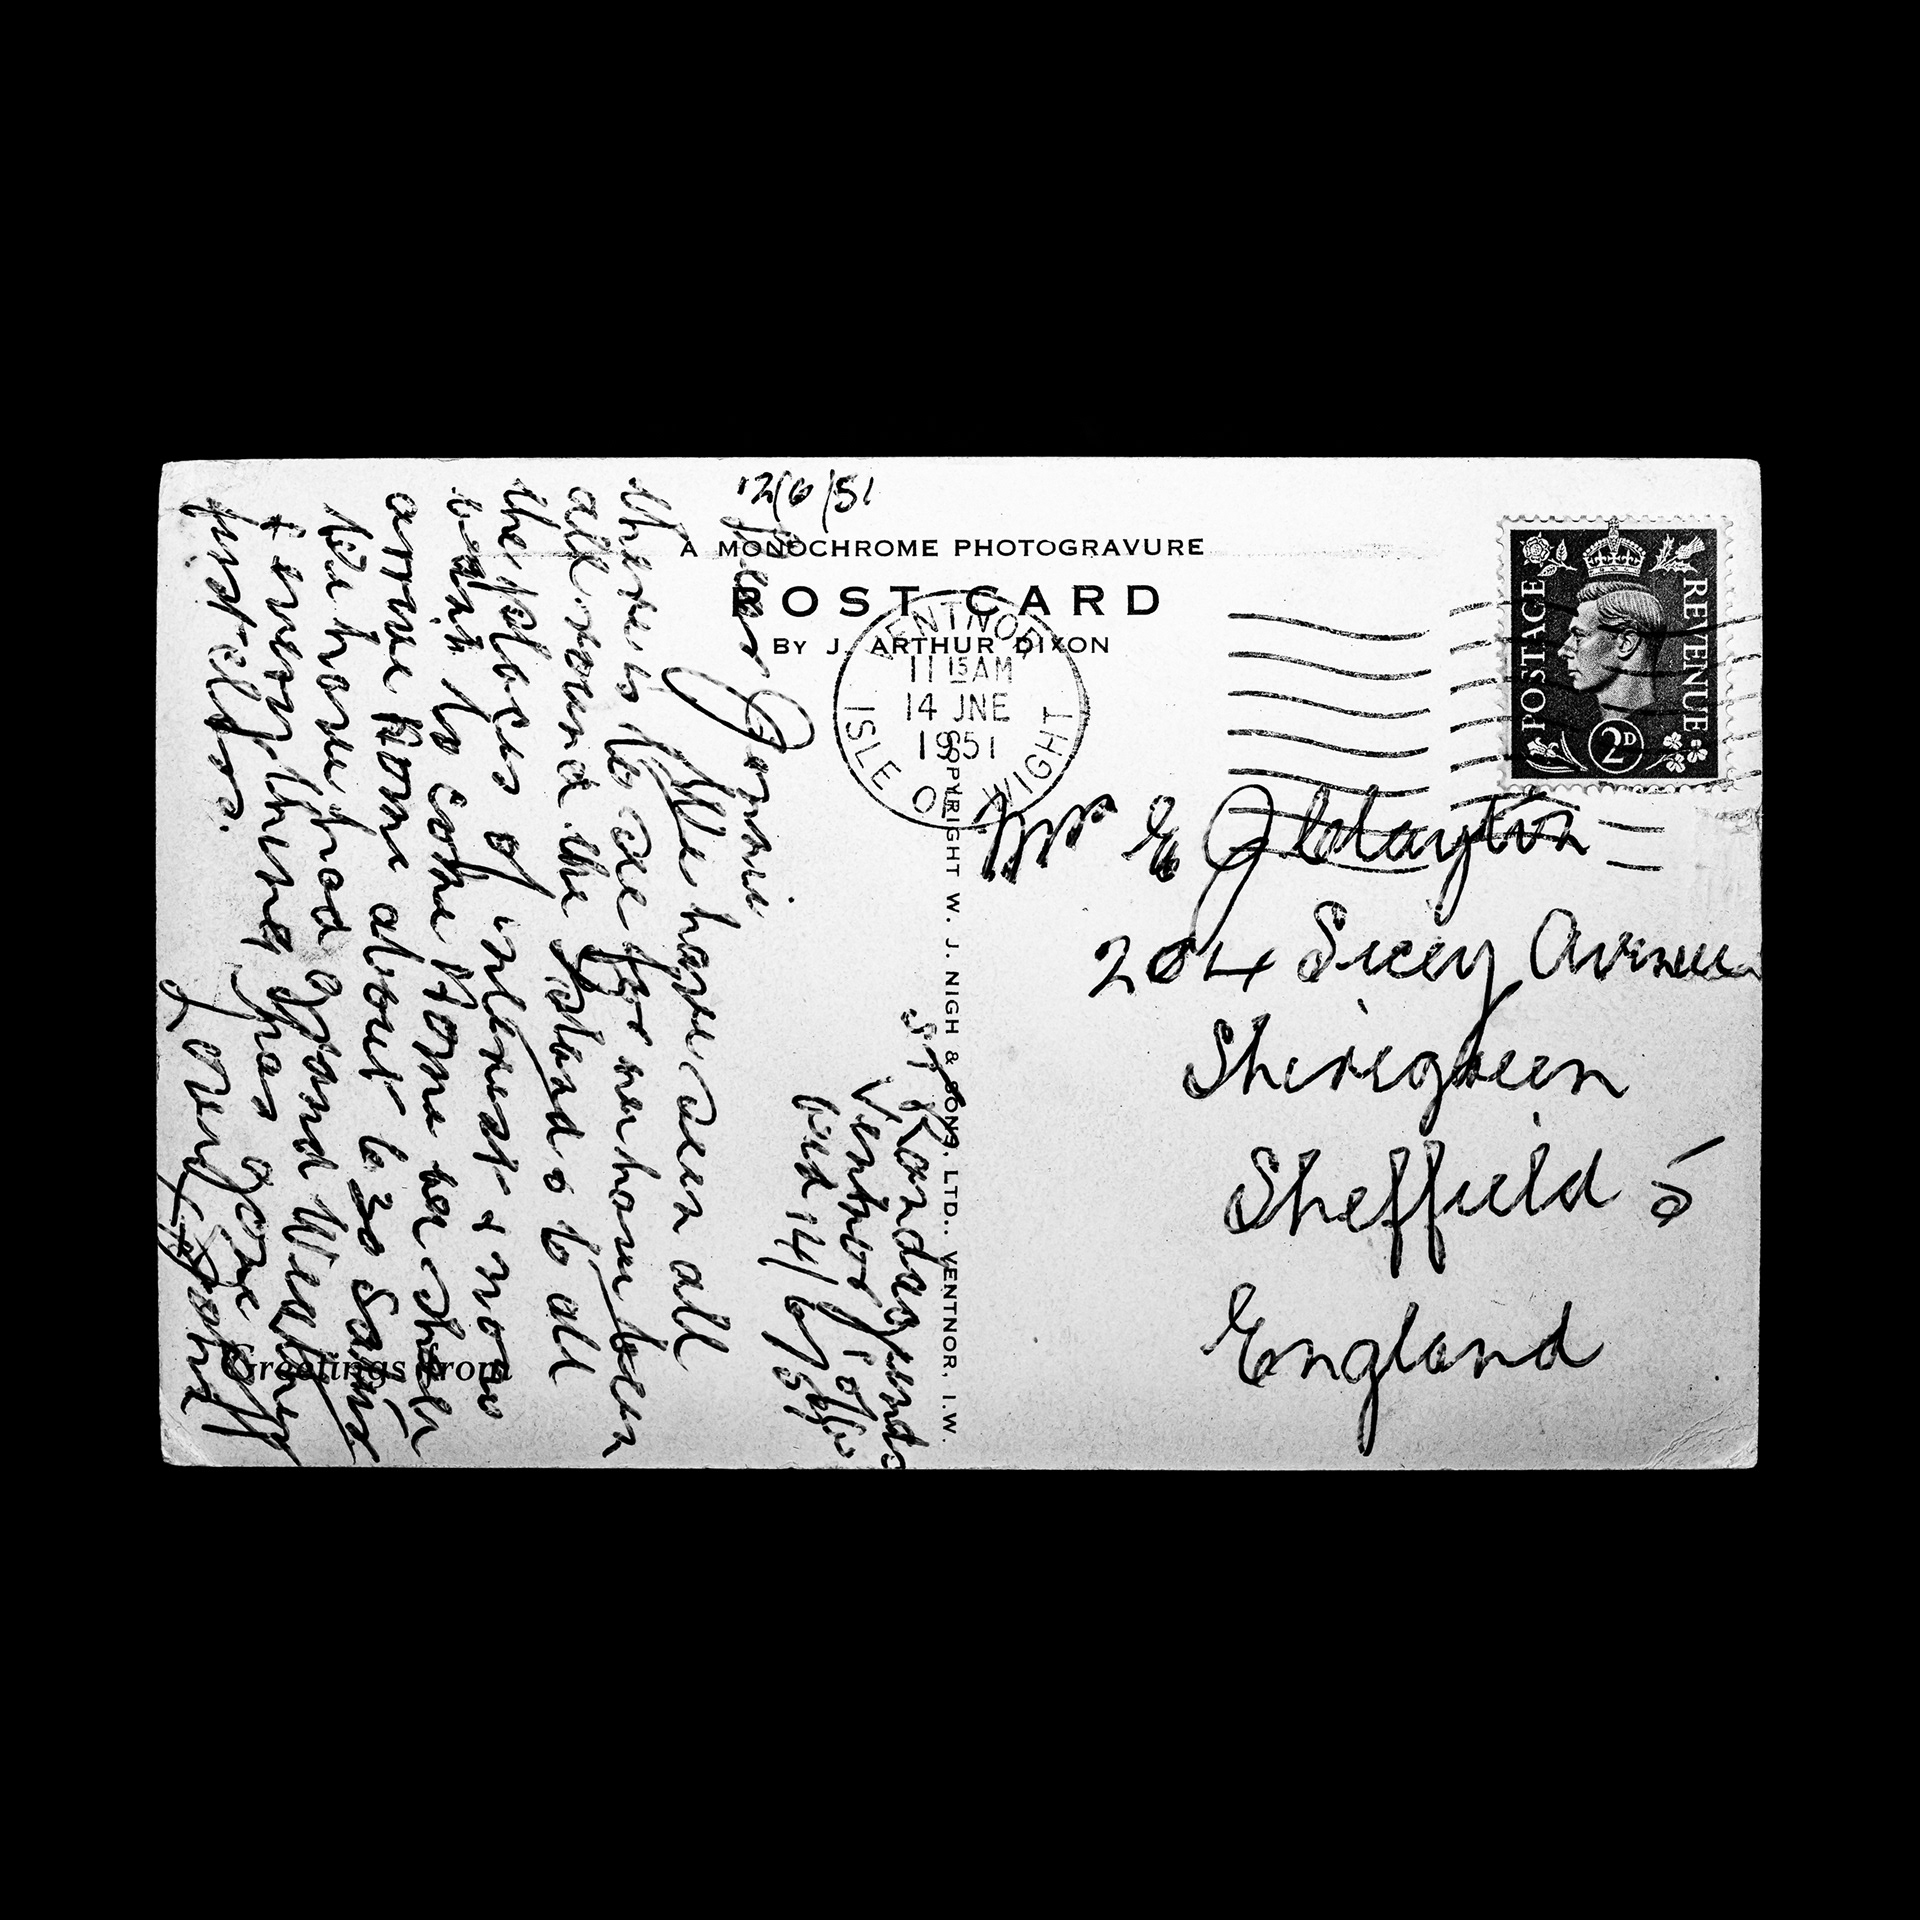 12/6/51
A MONOCHROME PHOTOGRAVURE
POST CARD
BY J. ARTHUR DIXON
VENTNOR
11 15 AM
14 JNE
1951
ISLE OF WIGHT
POSTAGE
REVENUE
2D
COPYRIGHT W. J. NIGH & SONS, LTD., VENTNOR, I.W.
Mrs E J Clayton
204 Sicey Avenue
Shiregreen
Sheffield 5
England
Ventnor
Wed 14/6/51
Dear
We have seen all
there is to see for we have been
all round the Island & to all
the places of interest & now
to come Home we shall
arrive Home about 6.30
We have had Grand Weather
& everything has gone off
just
Love
Greetings from